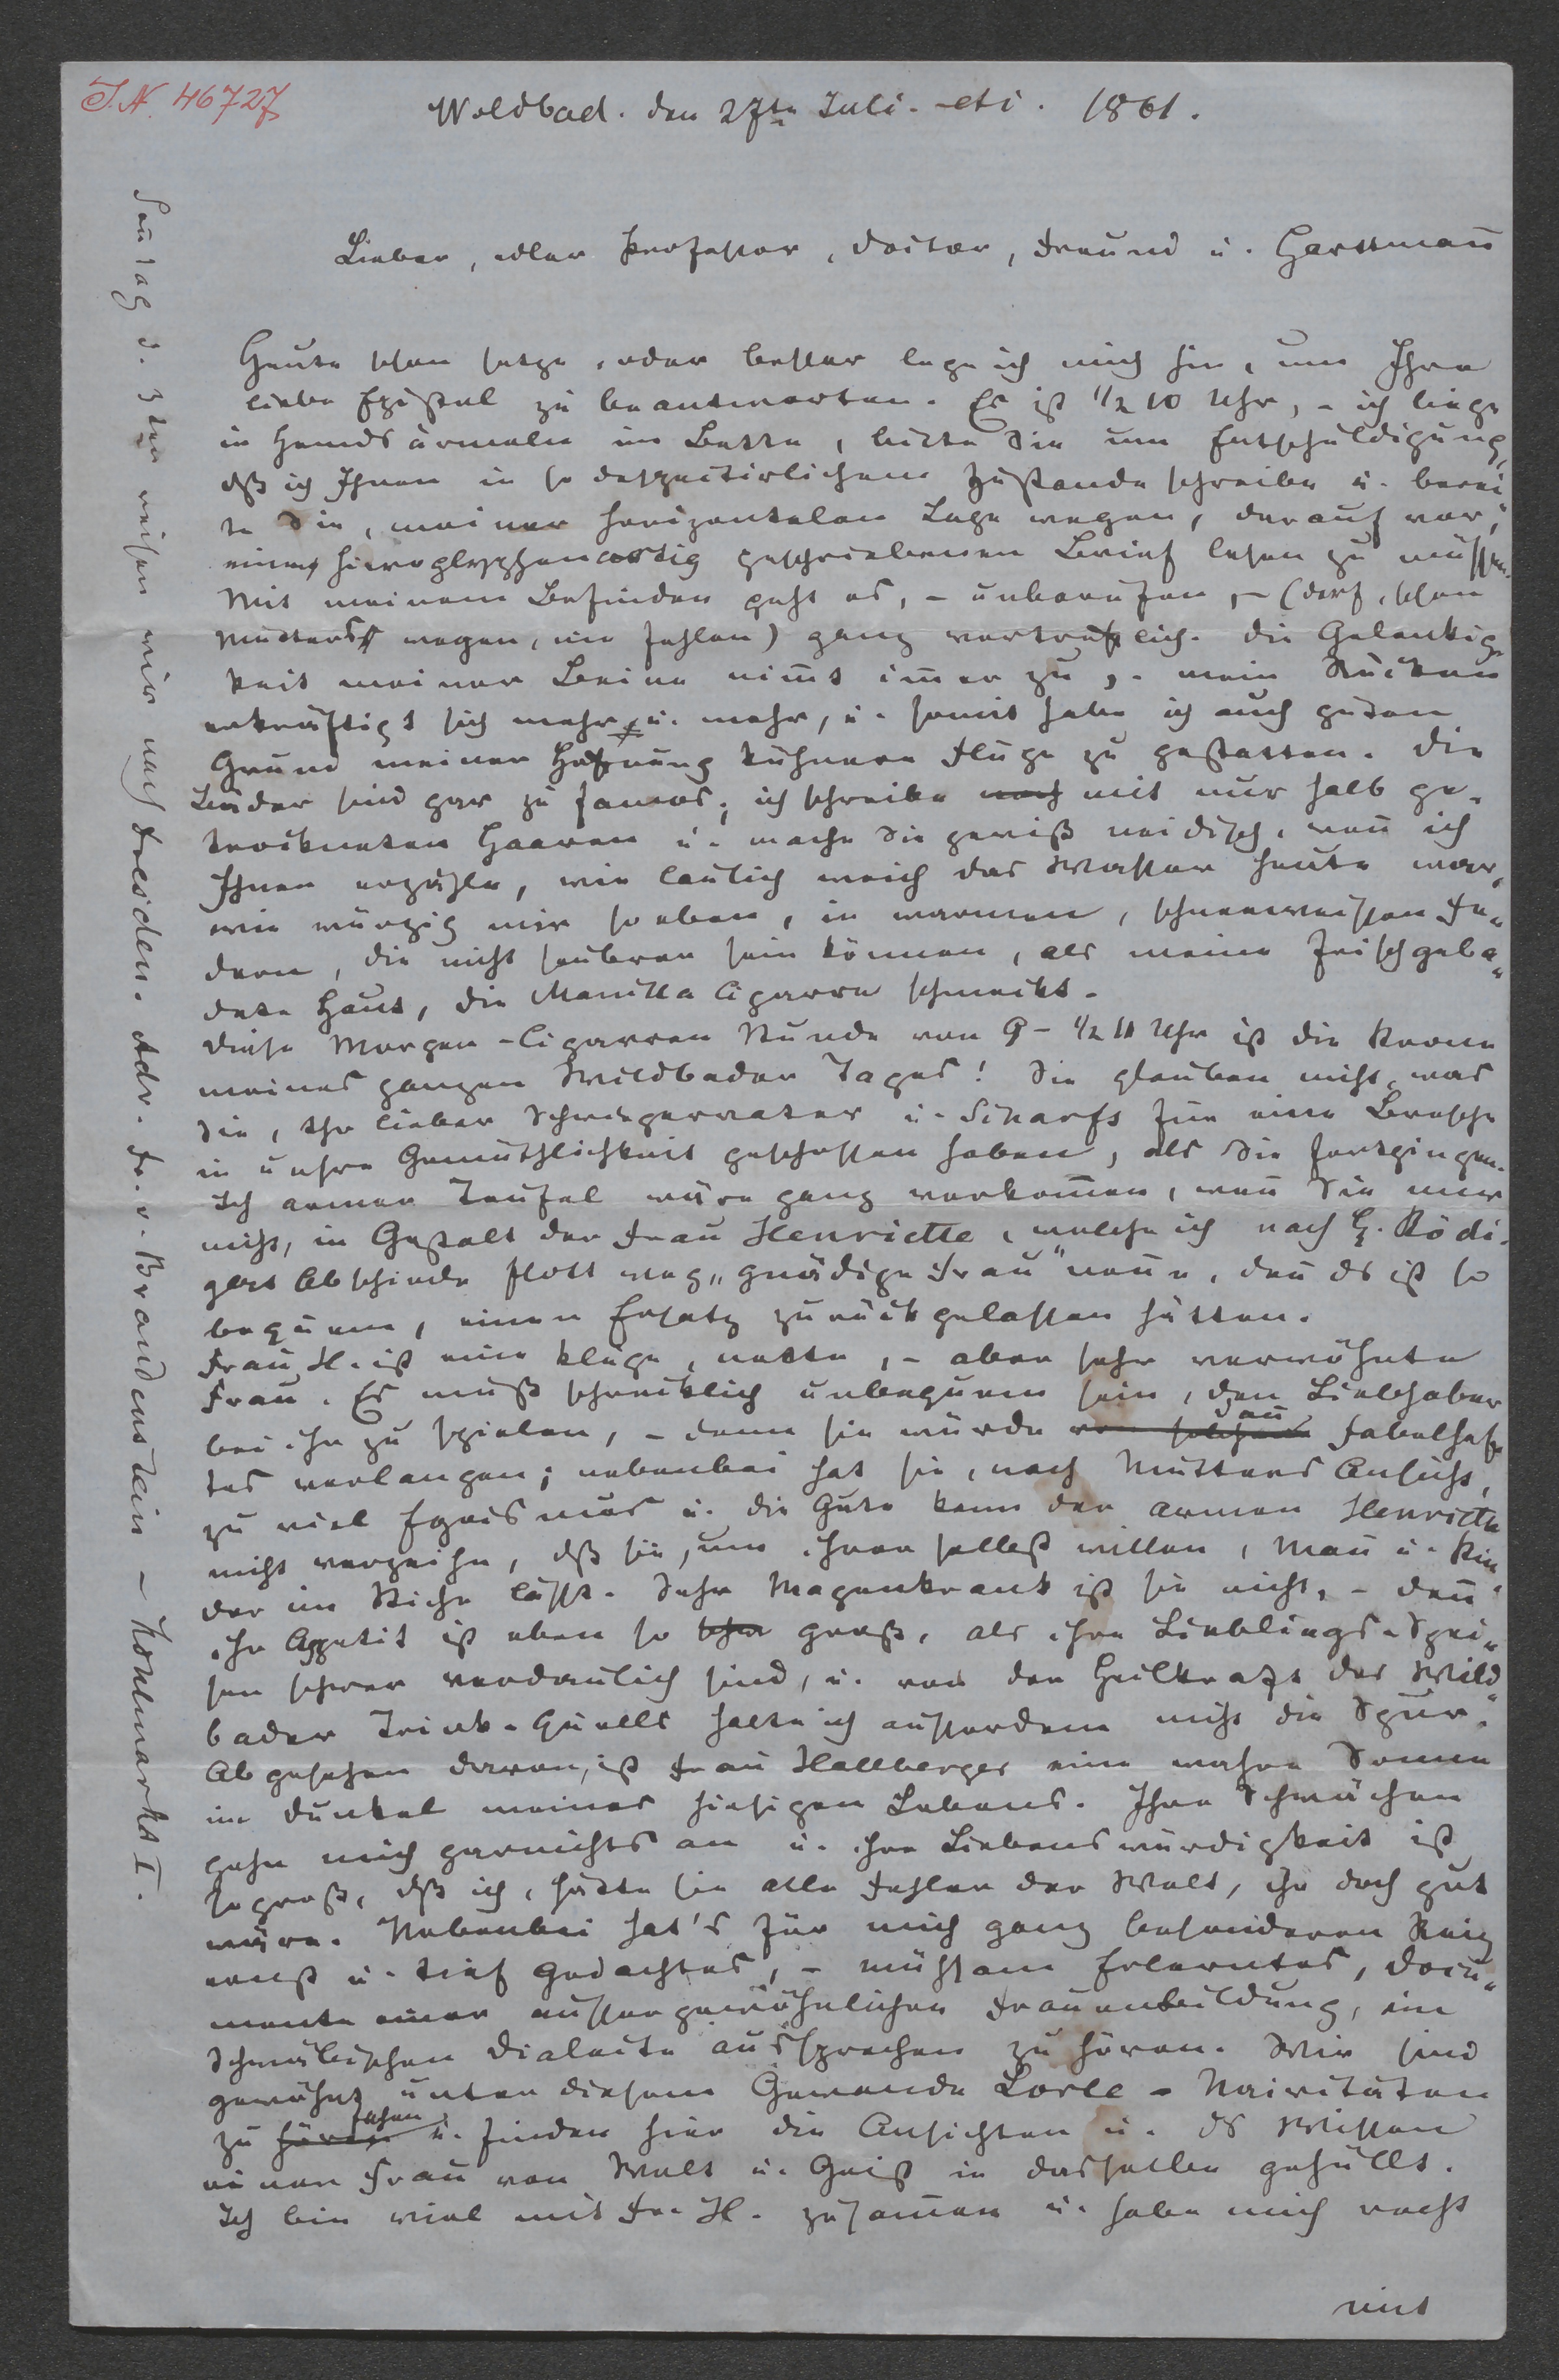 J.N. 46727
Wildbad. den 27te Juli. eti. 1861.
Lieber, edler Professor, Doctor, Freund u. Hartmañ
Heute schon setze, oder besser lege ich mich hin, um Ihre
liebe Epistel zu beantworten. Es ist 1/2 10 Uhr, - ich liege
in Hemdsärmeln im Bette, bitte Sie um Entschuldigung,
dß ich Ihnen in so despectirlichem Zustande schreibe u. berei-
te Sie, meiner horizontalen Lage wegen, darauf vor,
einen hieroglyphenartig geschriebenen Brief lesen zu müssen.
Mit meinem Befinden geht es, - unberufen, - (darf, schon
Mutters wegen, nie fehlen) ganz vortrefflich. Die Gelenkig-
keit meiner Beine nim̃t im̃er zu, - mein Rücken
erkräftigt sich mehr u. mehr, u. somit habe ich auch guten
Grund meiner Hoffnung kühnere Flüge zu gestatten. Die
Bäder sind gar zu famos; ich schreibe noch mit nur halb ge-
trockneten Haaren u. mache Sie gewiß neidisch, weñ ich
Ihnen erzähle, wie laulich weich das Wasser heute war,
wie würzig mir so eben, in warmen, schneeweissen Fe-
dern, die nicht saubrer sein können, als meine frischgeba-
dete Haut, die Manilla Cigarre schmeckt.
Diese Morgen-Cigarren Stunde von 9 - 1/2 11 Uhr ist die Krone
meines ganzen Wildbader Tages! Sie glauben nicht, was
Sie, Ihr lieber Schwiegervater u. Scharffs für eine Bresche
in unsre Gemüthlichkeit geschossen haben, als Sie fortgingen.
Ich armer Teufel wäre ganz verkom̃en, weñ Sie mir
nicht, in Gestalt der Frau Henriette, welche ich nach H. Rödi-
gers Abschiede flott weg „gnädige Frau" neñe, deñ ds ist so
bequem, einen Ersatz zurückgelassen hätten.
Frau H. ist eine kluge, nette, - aber sehr verwöhnte
Frau. Es muß schrecklich unbequem sein, den Liebhaber
bei ihr zu spielen, - denn sie würde von solchem dañ Fabelhaf-
tes verlangen; nebenbei hat sie, nach Mutters Ansicht,
zu viel Egoismus u. die Gute kann der armen Henriette
nicht verzeihn, dß sie, um ihrer selbst willen, Mañ u. Kin-
der im Stiche läßt. Sehr Magenkrank ist sie nicht, - deñ
ihr Appetit ist eben so sehr groß, als ihre Lieblings-Spei-
sen schwer verdaulich sind, u. von der Heilkraft des Wild-
bader Trink-Quells halte ich ausserdem nicht die Spur.
Abgesehen davon, ist Frau Hallberger eine wahre Sonne
im Dunkel meines hiesigen Lebens. Ihre Schwächen
gehn mich garnichts an u. ihre Liebenswürdigkeit ist
so groß, dß ich, hätte sie alle Fehler der Welt, ihr doch gut
wäre. Nebenbei hat's für mich ganz besonderen Reiz
ernst u. tief Gedachtes, - mühsam Erlerntes, Docu-
mente einer aussergewöhnlichen Frauenbildung, im
Schwäbischen Dialecte aussprechen zu hören. Wir sind
gewöhnt unter diesem Gewande Lorle - Naivitäten
zu hören sehen u. finden hier die Ansichten u. ds Wissen
einer Frau von Welt u. Geist in dasselbe gehüllt.
Ich bin viel mit Fr. H. zusam̃en u. habe mich recht
mit
Soñtag d. 3ten reisen wir nach Dresden. Adr. Fr. v. Brandenstein - Kohlmarkt I.